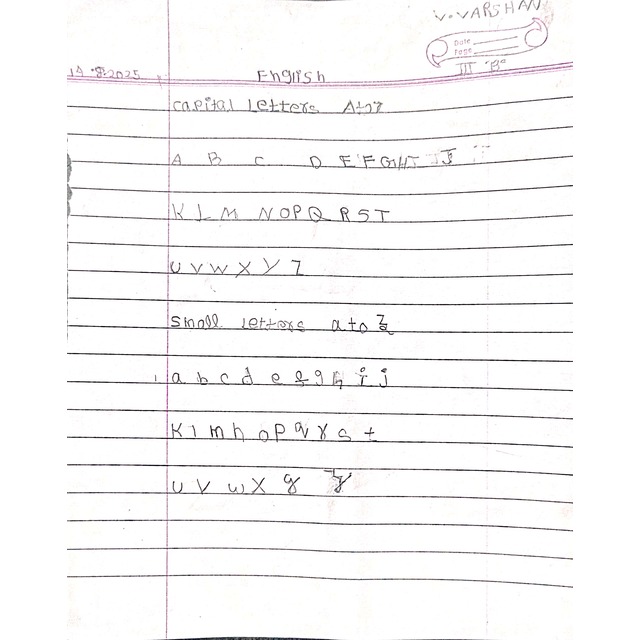 V. VARSHAN
Date
Page
III "B"
19.8.2025
English
capital letters A to Z
A B C D E F G H I J
K L M N O P Q R S T
U V W X Y Z
Small letters a to z
a b c d e f g h i j
K l m n o p q r s t
u v w x y z